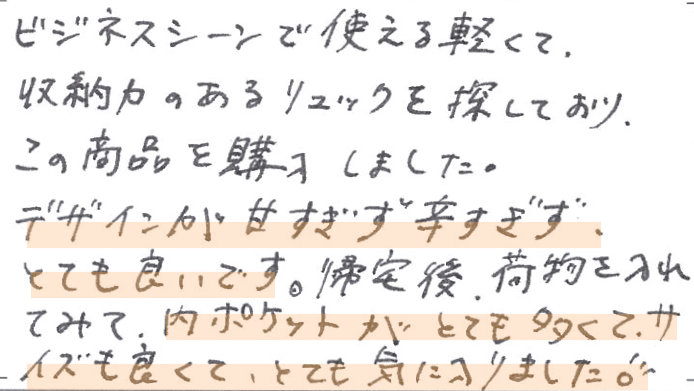 ビジネスシーンで使える軽くて、
収納力のあるリュックを探しており、
この商品を購入しました。
デザインが甘すぎず辛すぎず、
とても良いです。帰宅後、荷物を入れ
てみて、内ポケットがとても多くて、サ
イズも良くて、とても気に入りました。